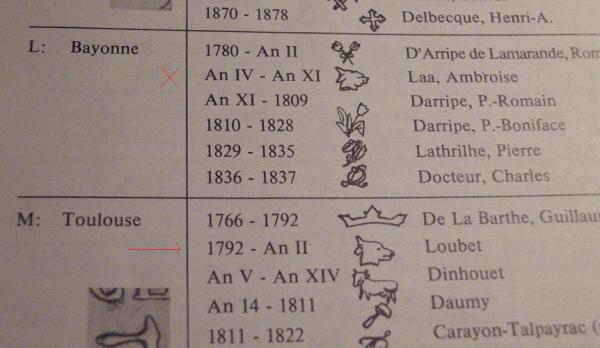 1870 - 1878 Delbecque, Henri-A.
L: Bayonne 1780 - An II D'Arripe de Lamarande, Rom
An IV - An XI Laa, Ambroise
An XI - 1809 Darripe, P.-Romain
1810 - 1828 Darripe, P.-Boniface
1829 - 1835 Lathrilhe, Pierre
1836 - 1837 Docteur, Charles
M: Toulouse 1766 - 1792 De La Barthe, Guillau
1792 - An II Loubet
An V - An XIV Dinhouet
An 14 - 1811 Daumy
1811 - 1822 Carayon-Talpayrac (